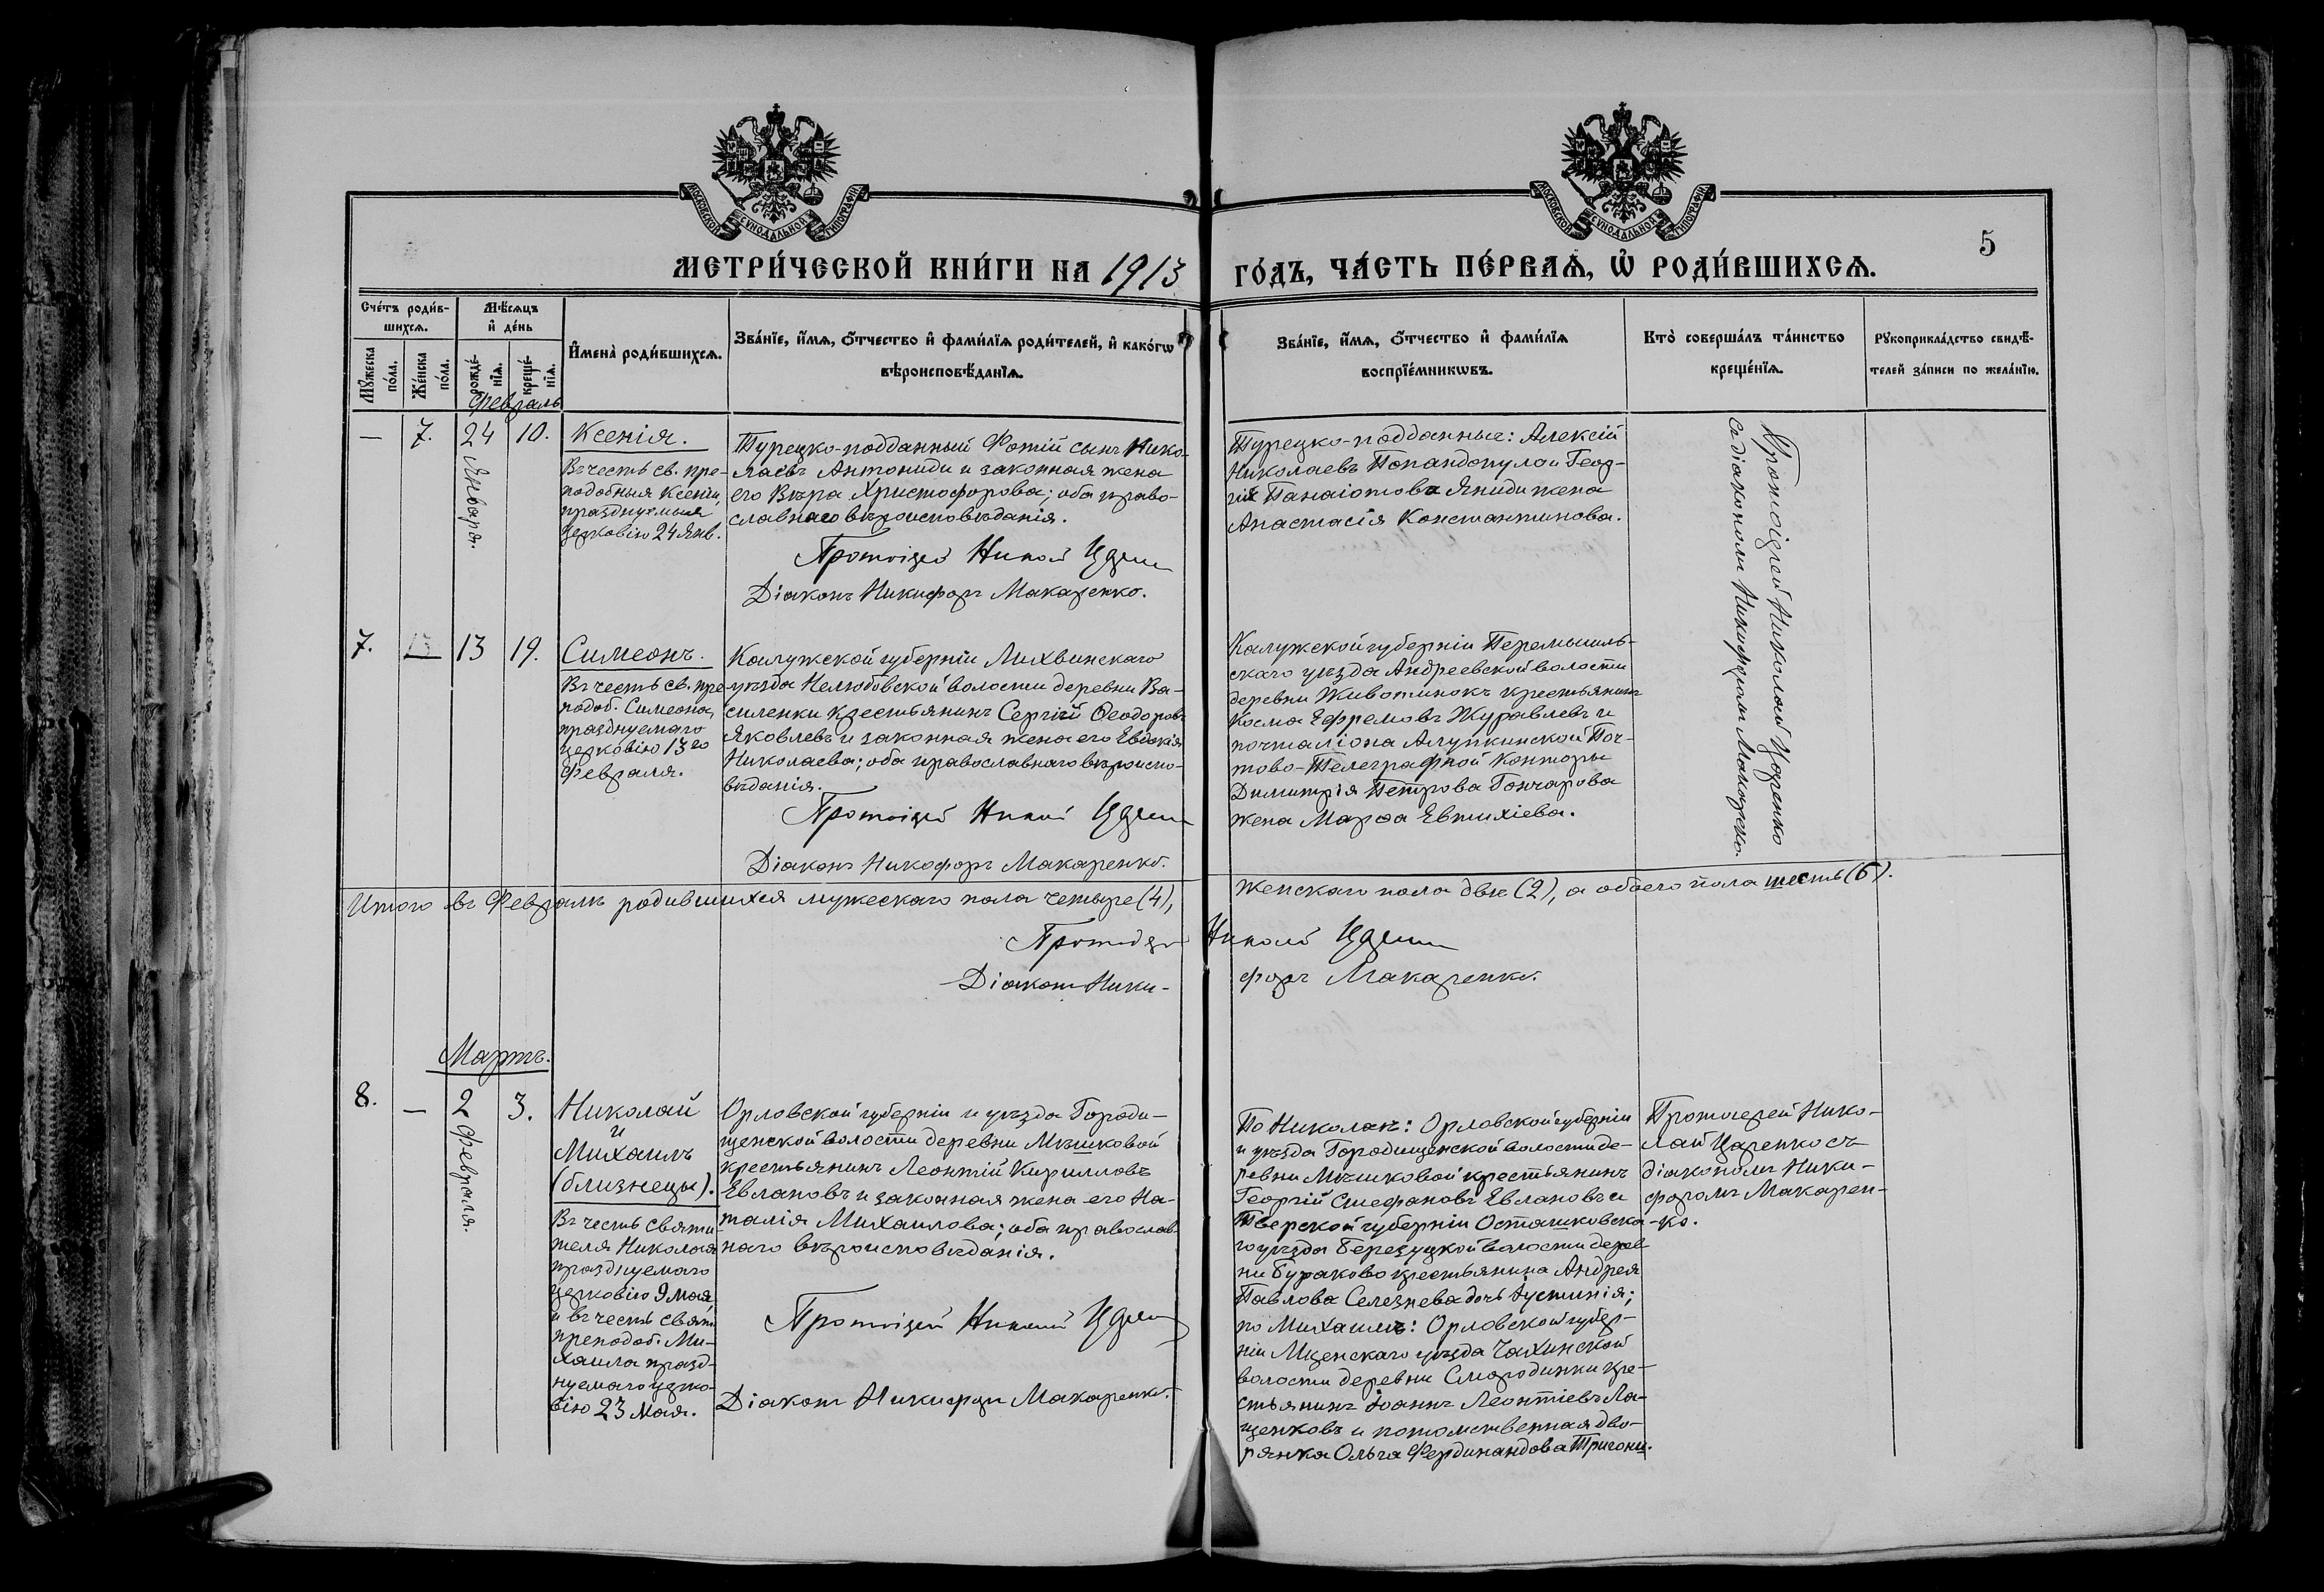 МОСКОВСКОЙ СѴНОДАЛЬНОЙ ТИПОГРАФІИ
МОСКОВСКОЙ СѴНОДАЛЬНОЙ ТИПОГРАФІИ
5
МЕТРИ́ЧЕСКОЙ КНИ́ГИ НА 1913 ГО́ДЪ, ЧА́СТЬ ПЕ́РВАѦ, Ѡ҆ РОДИ́ВШИХСѦ.
Сче́тъ роди́в-
шихсѧ.
Мѣ́сѧцъ
и҆ де́нь
Мꙋ́жеска по́ла.
Же́нска по́ла.
рожде́-
нїѧ.
креще́-
нїѧ.
И҆мена̀ роди́вшихсѧ.
Зва́нїе, и҆́мѧ, ѻ҆́тчество и҆ фами́лїѧ роди́телей, и҆ како́гѡ
вѣроисповѣ́данїѧ.
Зва́нїе, и҆́мѧ, ѻ҆́тчество и҆ фами́лїѧ
воспрїе́мникѡвъ.
Кто̀ соверша́лъ та́инство
креще́нїѧ.
Рꙋкоприкла́дство свидѣ́-
телей за́писи по жела́нїю.
Февраль
—
7.
24
Января.
10.
Ксенія.
Въ честь св. пре-
подобныя Ксеніи,
празднуемыя
церковію 24 Янв.
Турецко-подданный Фотій сынъ Нико-
лаевъ Антониди и законная жена
его Вѣра Христофорова; оба право-
славнаго вѣроисповѣданія.
Протоіерей Николай Царенко
Діаконъ Никифоръ Макаренко.
Турецко-подданные: Алексій
Николаевъ Попандопулои Геор-
гія Панаіотова Яниди жена
Анастасія Константинова.
Протоіерей Николай Царенко
съ діакономъ Никифоромъ Макаренко.
7.
—
13
19.
Симеонъ.
Въ честь св. пре-
подоб. Симеона,
празднуемаго
церковію 13го
Февраля.
Калужской губерніи Лихвинскаго
уѣзда Нелюбовской волости деревни Ва-
силенки крестьянинъ Сергій Ѳеодоровъ
Яковлевъ и законная жена его Евдокія
Николаева; оба православнаго вѣроиспо-
вѣданія.
Протоіерей Николай Царенко
Діаконъ Никифоръ Макаренко.
Калужской губерніи Перемышль-
скаго уѣзда Андреевской волости
деревни Животинокъ крестьянинъ
Косма Ефремовъ Журавлевъ и
почталіона Алупкинской Поч-
тово-Телеграфной Конторы
Димитрія Петрова Гончарова
жена Марѳа Евтихіева.
Итого въ Февралѣ родившихся мужескаго пола четыре (4), женскаго пола двѣ (2), а обоего пола шесть (6).
Протоіерей Николай Царенко
Діаконъ Ники-форъ Макаренко.
Мартъ.
8.
—
2
Февраля.
3.
Николай
и
Михаилъ
(близнецы).
Въ честь святи-
теля Николая
празднуемаго
церковію 9 мая,
и въ честь свят.
преподоб. Ми-
хаила празд-
нуемаго церко-
вію 23 мая.
Орловской губерніи и уѣзда Городи-
щенской волости деревни Мѣшковой
крестьянинъ Леонтій Кирилловъ
Евлановъ и законная жена его На-
талія Михаилова; оба православ-
наго вѣроисповѣданія.
Протоіерей Николай Царенко
Діаконъ Никифоръ Макаренко.
По Николаѣ: Орловской губерніи
и уѣзда Городищенской волости де-
ревни Мѣшковой крестьянинъ
Георгій Стефановъ Евлановъ и
Тверской губерніи Осташковска-
го уѣзда Березуцкой волости дерев-
ни Бураково крестьянина Андрея
Павлова Селезнева дочь Іустинія;
по Михаилѣ: Орловской губер-
ніи Мценскаго уѣзда Чахинской
волости деревни Смородинки кре-
стьянинъ Іоаннъ Леонтіевъ Ла-
щенковъ и потомственная дво-
рянка Ольга Фердинандова Тригони.
Протоіерей Нико-
лай Царенко съ
діакономъ Ники-
форомъ Макарен-
ко.